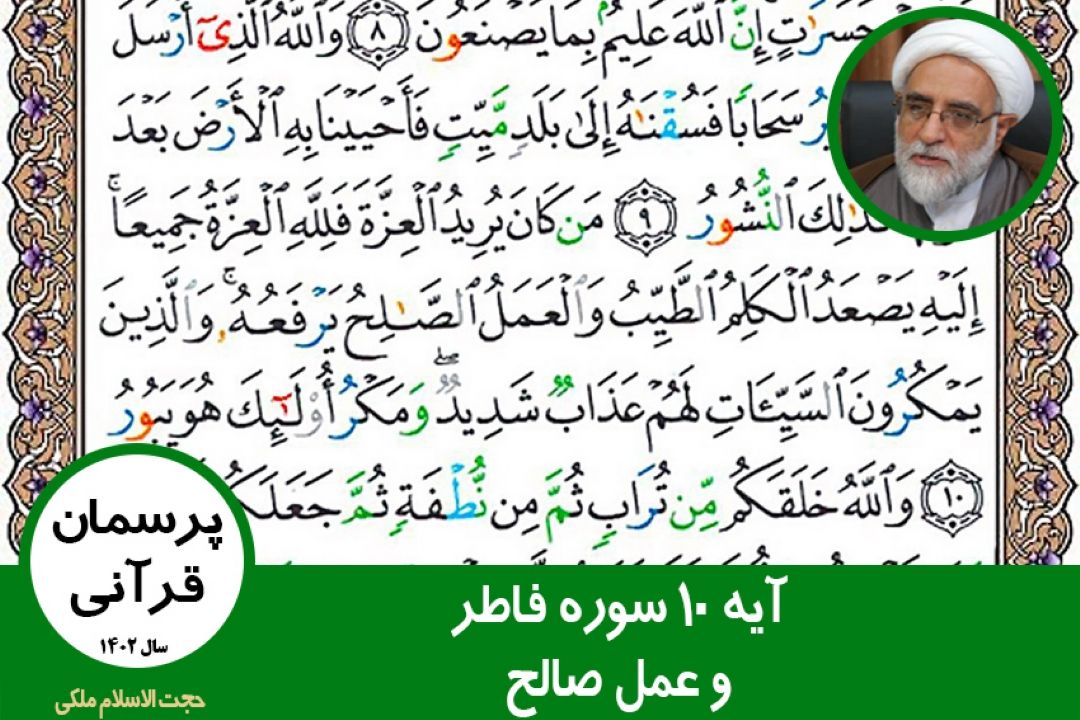 حَسَرَٰتٍ إِنَّ ٱللَّهَ عَلِيمٌۢ بِمَا يَصْنَعُونَ ۝٨ وَٱللَّهُ ٱلَّذِىٓ أَرْسَلَ
سَحَابًا فَسُقْنَٰهُ إِلَىٰ بَلَدٍ مَّيِّتٍ فَأَحْيَيْنَا بِهِ ٱلْأَرْضَ بَعْدَ
كَذَٰلِكَ ٱلنُّشُورُ ۝٩ مَن كَانَ يُرِيدُ ٱلْعِزَّةَ فَلِلَّهِ ٱلْعِزَّةُ جَمِيعًا ۚ
إِلَيْهِ يَصْعَدُ ٱلْكَلِمُ ٱلطَّيِّبُ وَٱلْعَمَلُ ٱلصَّٰلِحُ يَرْفَعُهُۥ ۚ وَٱلَّذِينَ
يَمْكُرُونَ ٱلسَّيِّـَٔاتِ لَهُمْ عَذَابٌ شَدِيدٌ ۖ وَمَكْرُ أُو۟لَٰٓئِكَ هُوَ يَبُورُ
۝١٠ وَٱللَّهُ خَلَقَكُم مِّن تُرَابٍ ثُمَّ مِن نُّطْفَةٍ ثُمَّ جَعَلَكُ
پرسمان
قرآنی
سال ۱۴۰۲
حجت الاسلام ملکی
آیه ۱۰ سوره فاطر
و عمل صالح